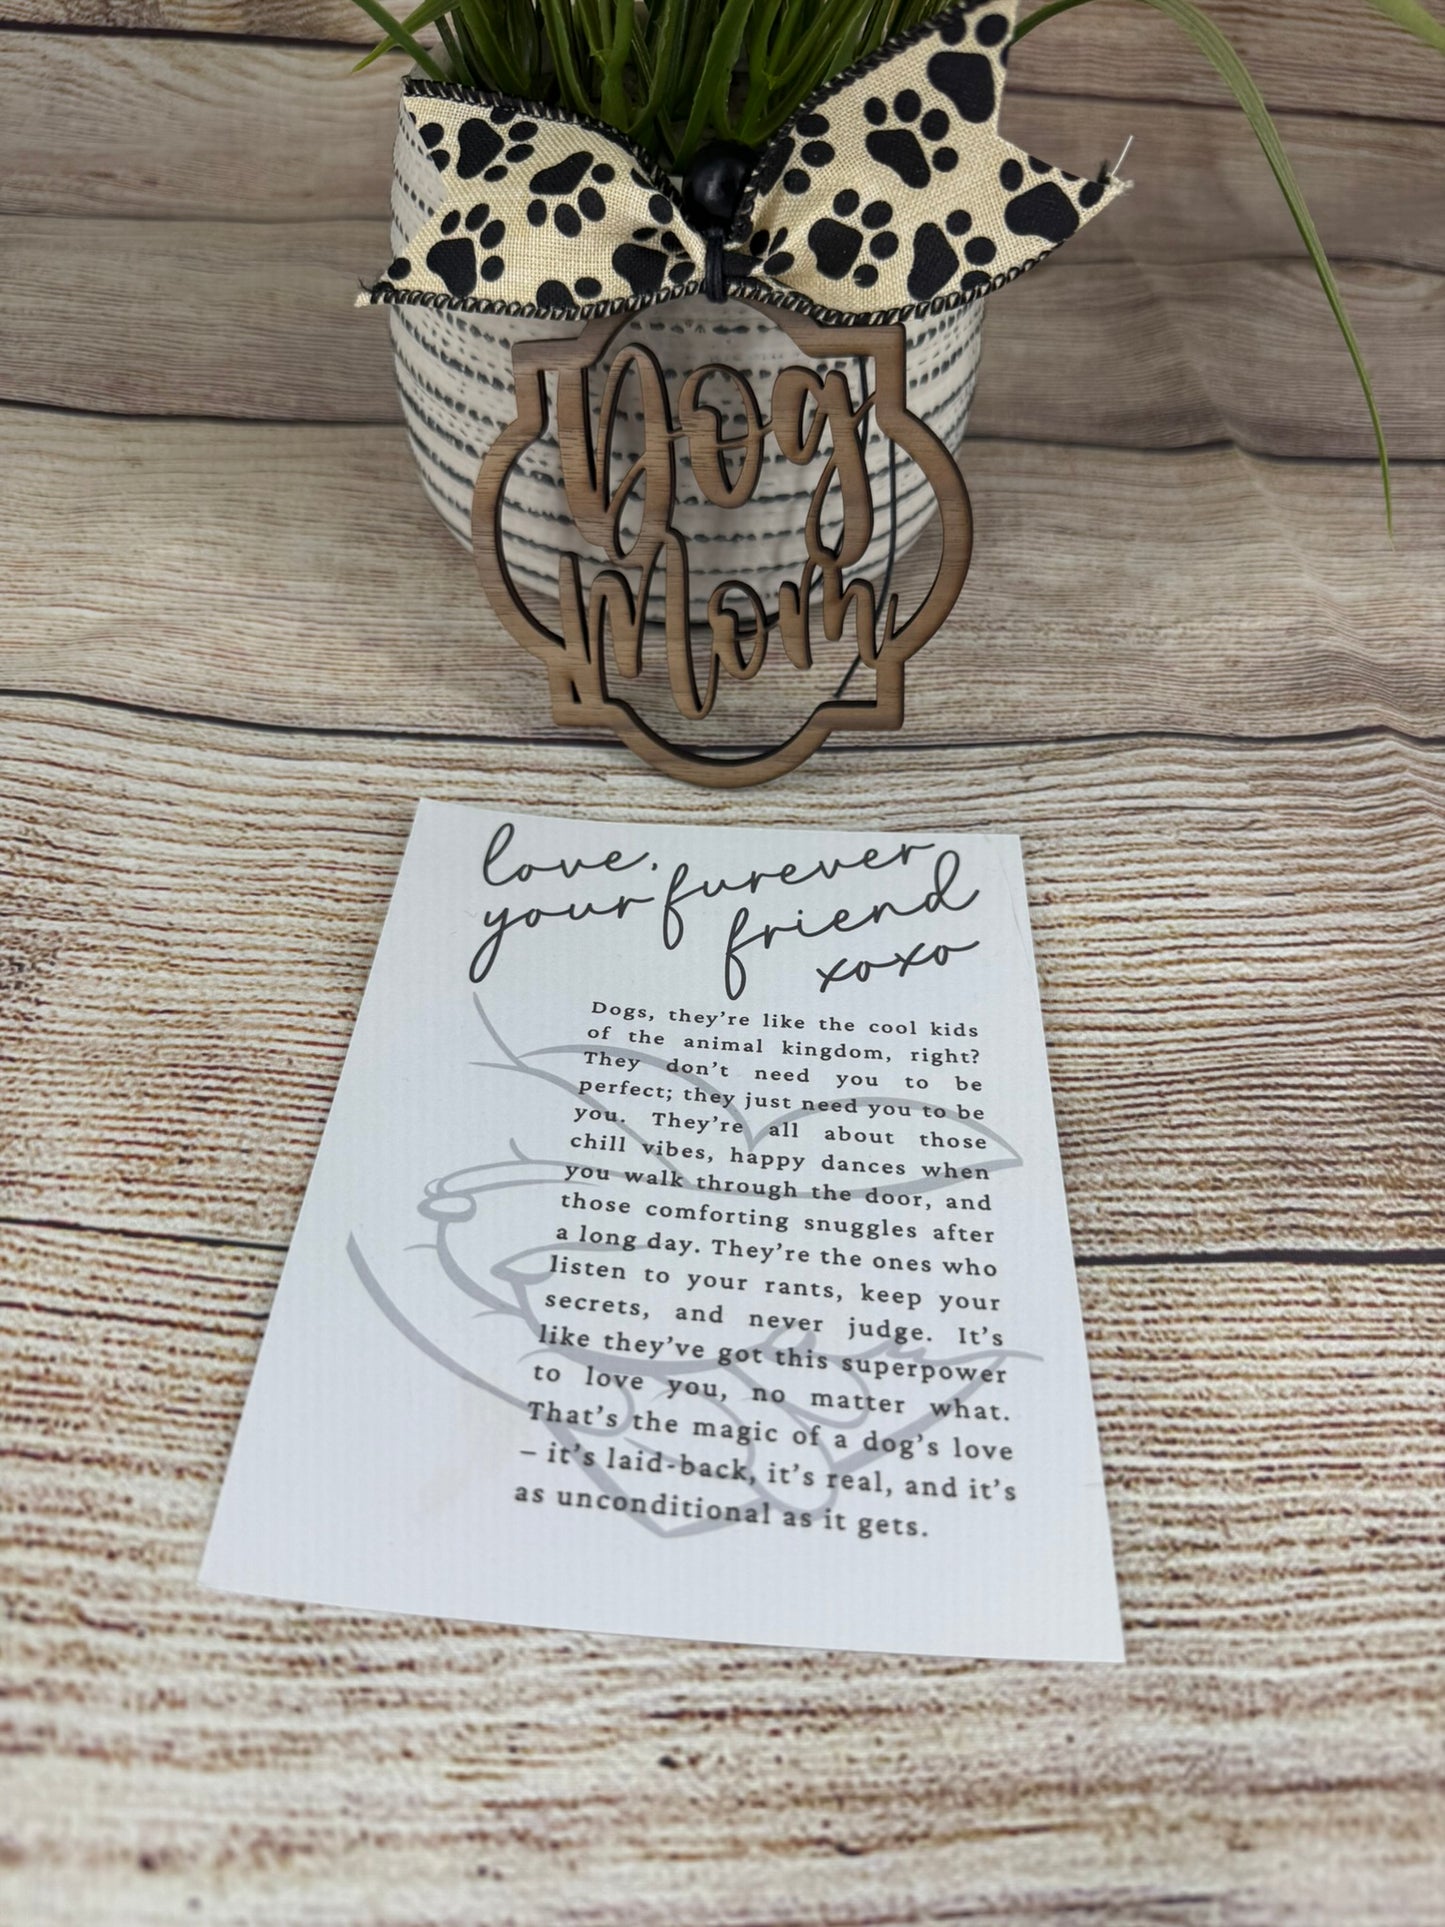 Dog
Mom
love,
your furever
friend
xoxo
Dogs, they're like the cool kids
of the animal kingdom, right?
They don't need you to be
perfect; they just need you to be
you. They're all about those
chill vibes, happy dances when
you walk through the door, and
those comforting snuggles after
a long day. They're the ones who
listen to your rants, keep your
secrets, and never judge. It's
like they've got this superpower
to love you, no matter what.
That's the magic of a dog's love
– it's laid-back, it's real, and it's
as unconditional as it gets.